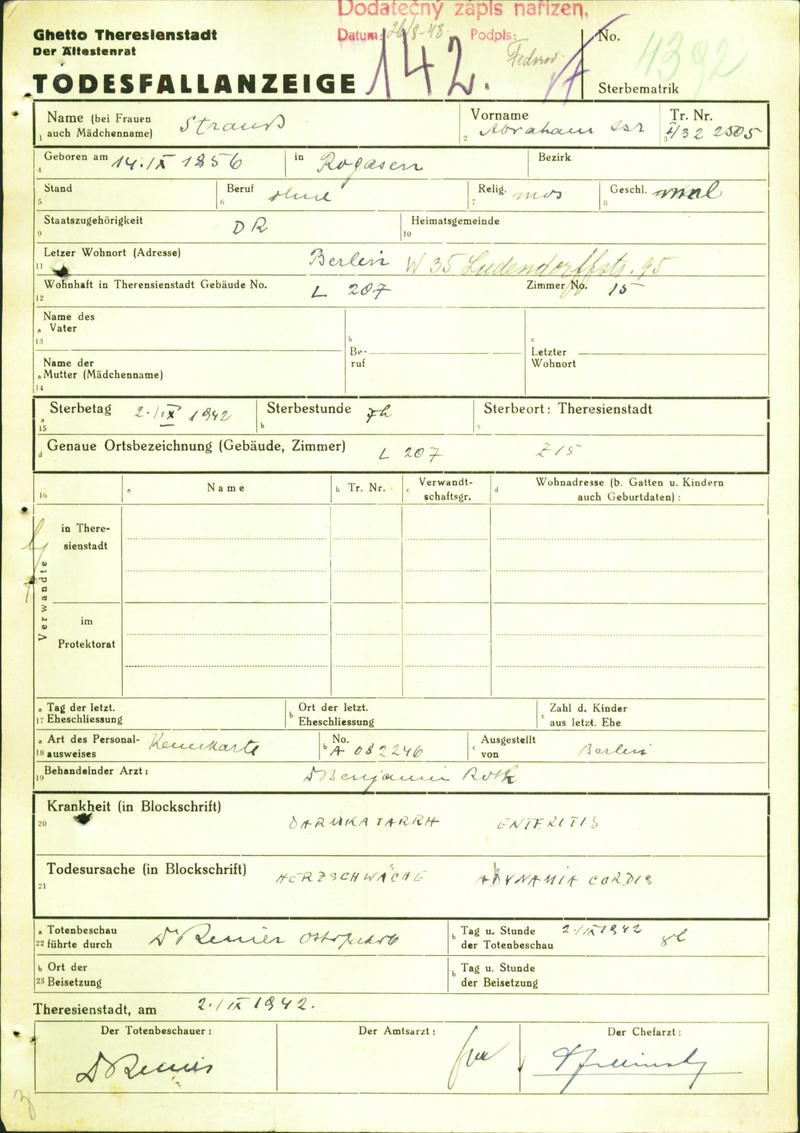 Dodatečný zápis nařízen,
Datum: 26/8-48. Podpis:
Ghetto Theresienstadt
Der Ältestenrat
TODESFALLANZEIGE
142.
No. 4392
Sterbematrik
Name (bei Frauen auch Mädchenname) Strauß
1
Vorname Abraham Isr
2
Tr. Nr. I/32 2505
3
Geboren am 14.IX 1856
4
in Rogasen
Bezirk
Stand
5
Beruf ohne
6
Relig. mos
7
Geschl. mnl
8
Staatszugehörigkeit DR
9
Heimatsgemeinde
10
Letzer Wohnort (Adresse) Berlin W 35 Ludendorffstr. 95
11
Wohnhaft in Therensienstadt Gebäude No. L 207 Zimmer No. 15
12
Name des
a Vater
13
b Be-
ruf
c Letzter
Wohnort
Name der
a Mutter (Mädchenname)
14
Sterbetag 2./IX 1942
a 15
Sterbestunde 7h
b
Sterbeort: Theresienstadt
c
d Genaue Ortsbezeichnung (Gebäude, Zimmer) L 207 Z15
16
a Name
b Tr. Nr.
c Verwandt-
schaftsgr.
d Wohnadresse (b. Gatten u. Kindern
auch Geburtdaten):
Verwandte
in There-
sienstadt
im
Protektorat
a Tag der letzt.
17 Eheschliessung
b Ort der letzt.
Eheschliessung
c Zahl d. Kinder
aus letzt. Ehe
a Art des Personal-
18 ausweises Kennkarte
b No. A 082246
c Ausgestellt
von Berlin
19 Behandelnder Arzt: Dr Benjamin Roth
Krankheit (in Blockschrift) DARMKATARRH ENTERITIS
20
Todesursache (in Blockschrift) HERZSCHWÄCHE ADYNAMIA CORDIS
21
a Totenbeschau
22 führte durch
b Tag u. Stunde
der Totenbeschau 2./IX1942 8h
b Ort der
23 Beisetzung
b Tag u. Stunde
der Beisetzung
Theresienstadt, am 2./IX 1942.
Der Totenbeschauer:
Der Amtsarzt:
Der Chefarzt: